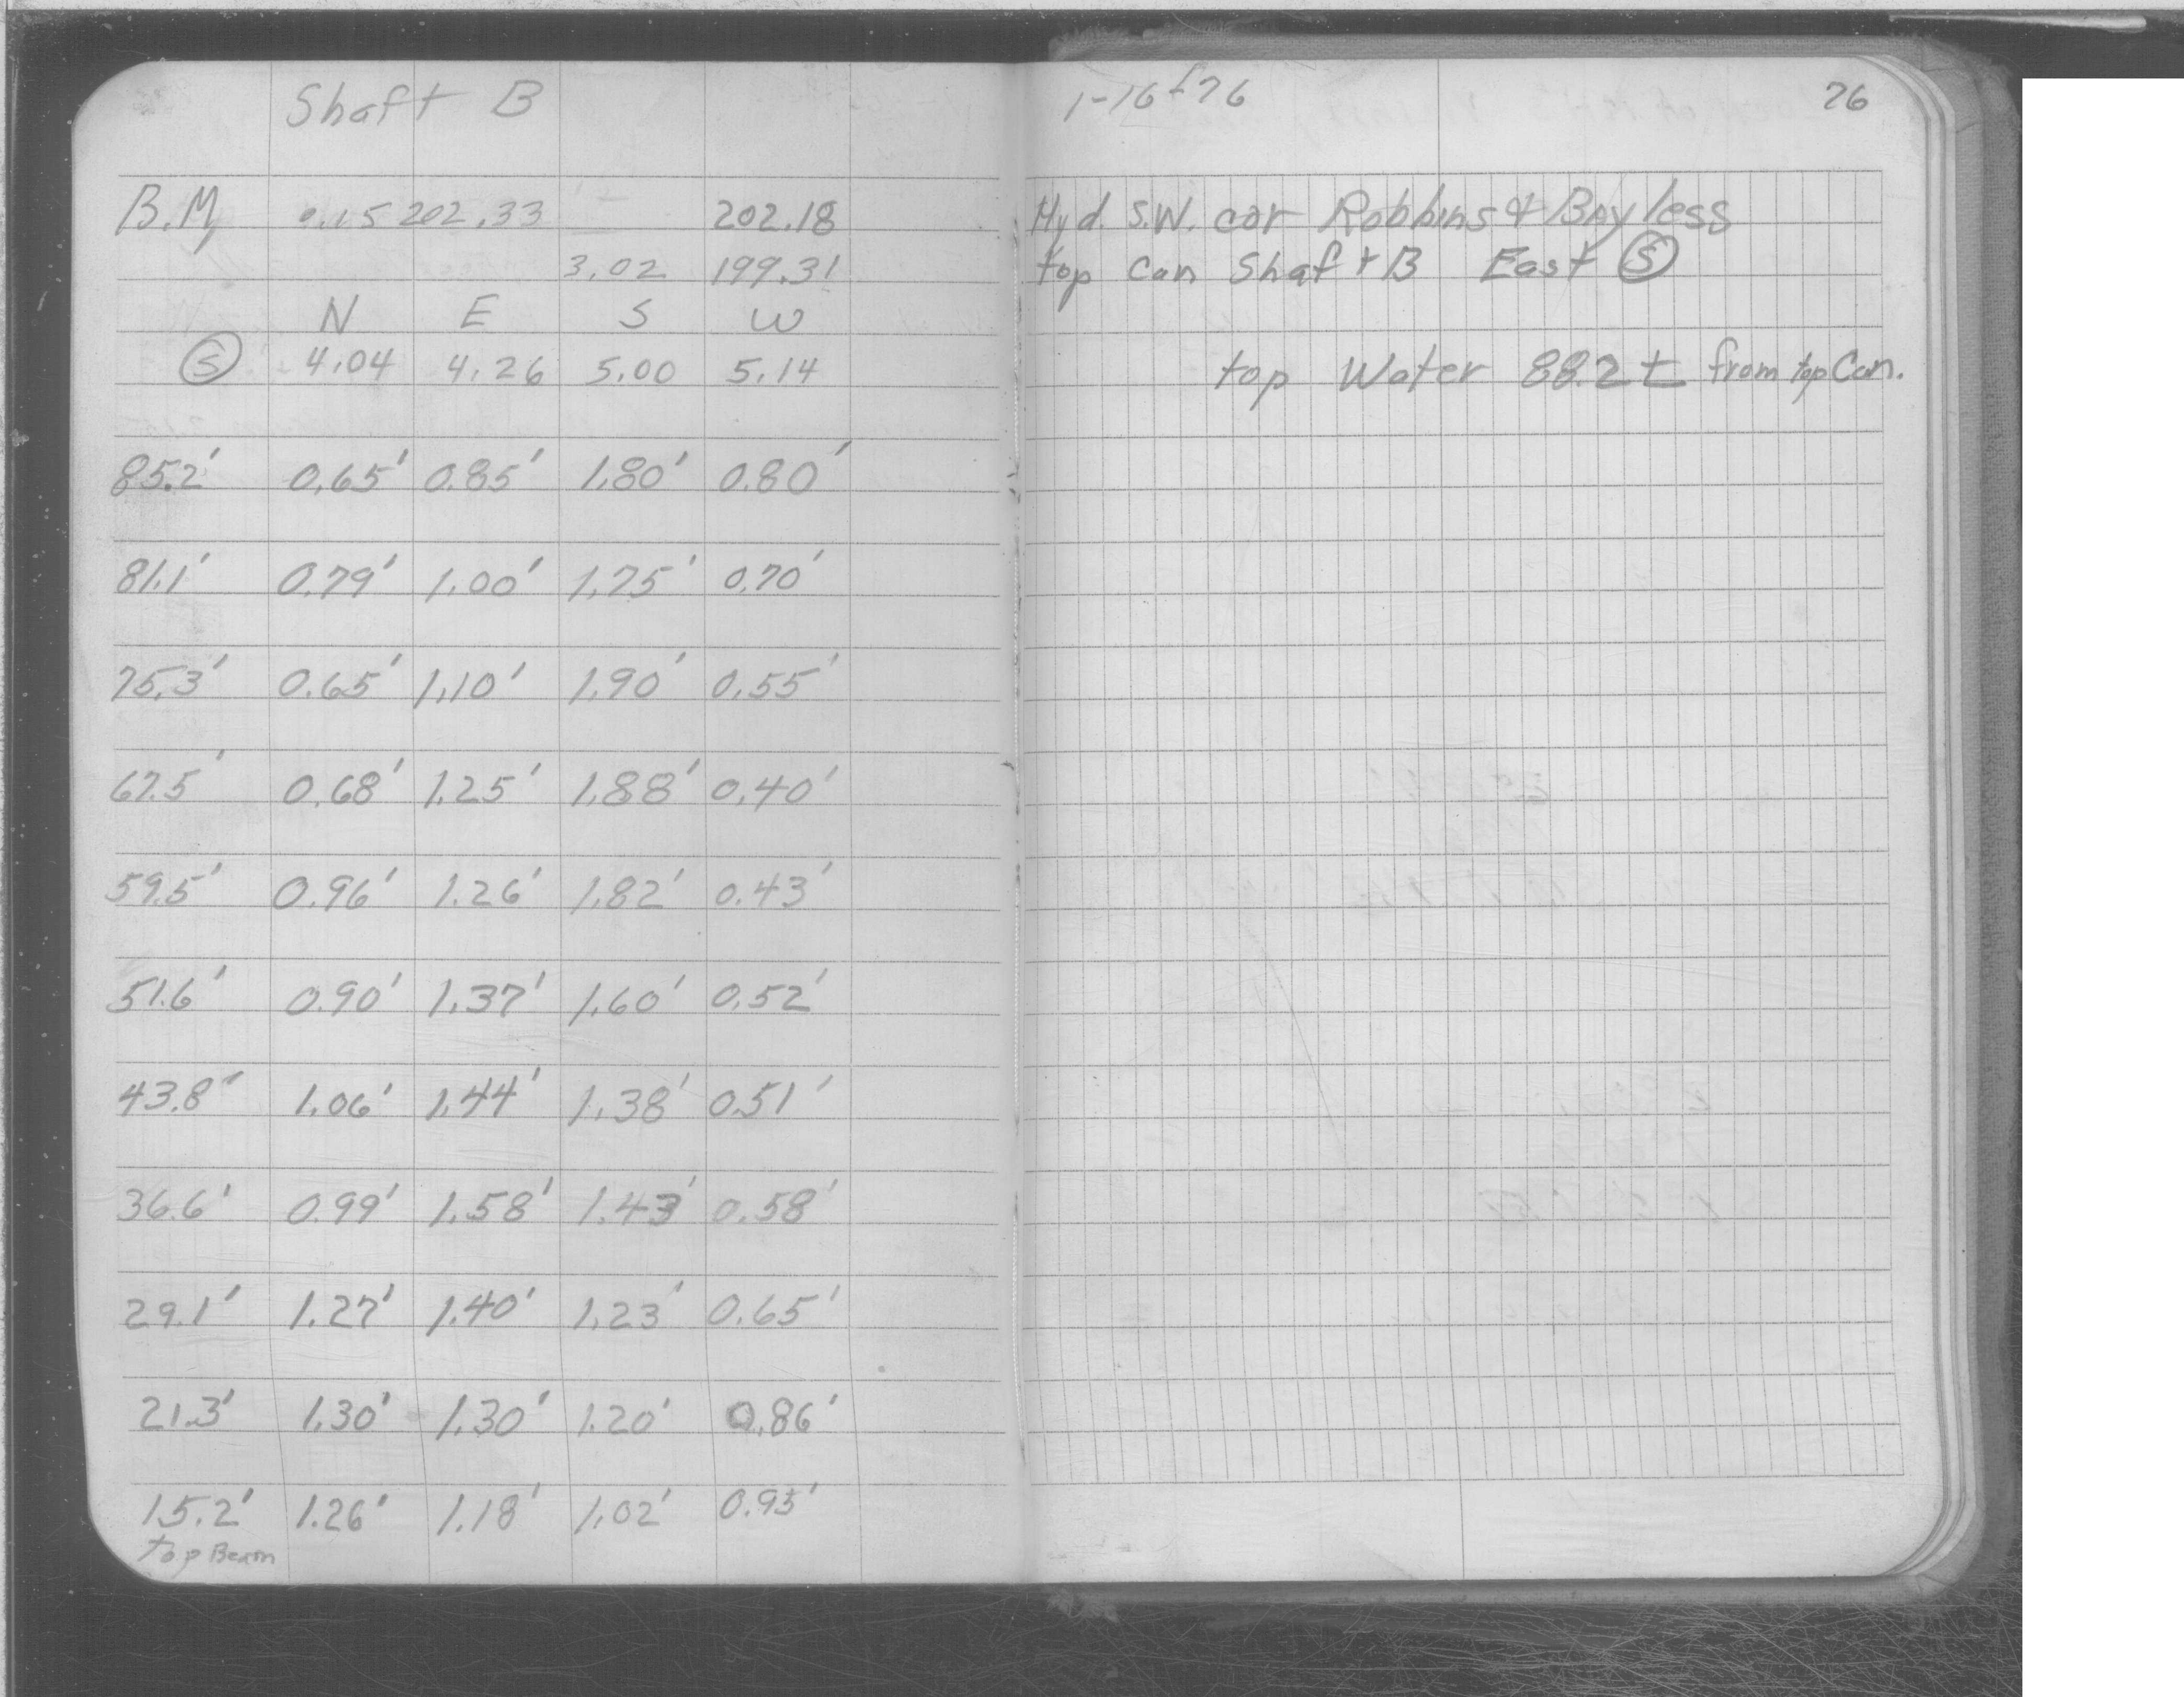 Shaft B
B.M. 0.15 202.33 202.18
3.02 199.31
N E S W
S 4.04 4.26 5.00 5.14
85.2' 0.65' 0.85' 1.80' 0.80'
81.1' 0.79' 1.00' 1.75' 0.70'
75.3' 0.65' 1.10' 1.90' 0.55'
67.5' 0.68' 1.25' 1.88' 0.40'
59.5' 0.96' 1.26' 1.82' 0.43'
51.6' 0.90' 1.37' 1.60' 0.52'
43.8' 1.06' 1.44' 1.38' 0.51'
36.6' 0.99' 1.58' 1.43' 0.58'
29.1' 1.27' 1.40' 1.23' 0.65'
21.3' 1.30' 1.30' 1.20' 0.86'
15.2' 1.26' 1.18' 1.02' 0.95'
top Beam
1-16-76 76
Hyd. S.W. cor Robbins & Bayless
top Can Shaft B East S
top Water 88.2 ± from top Can.